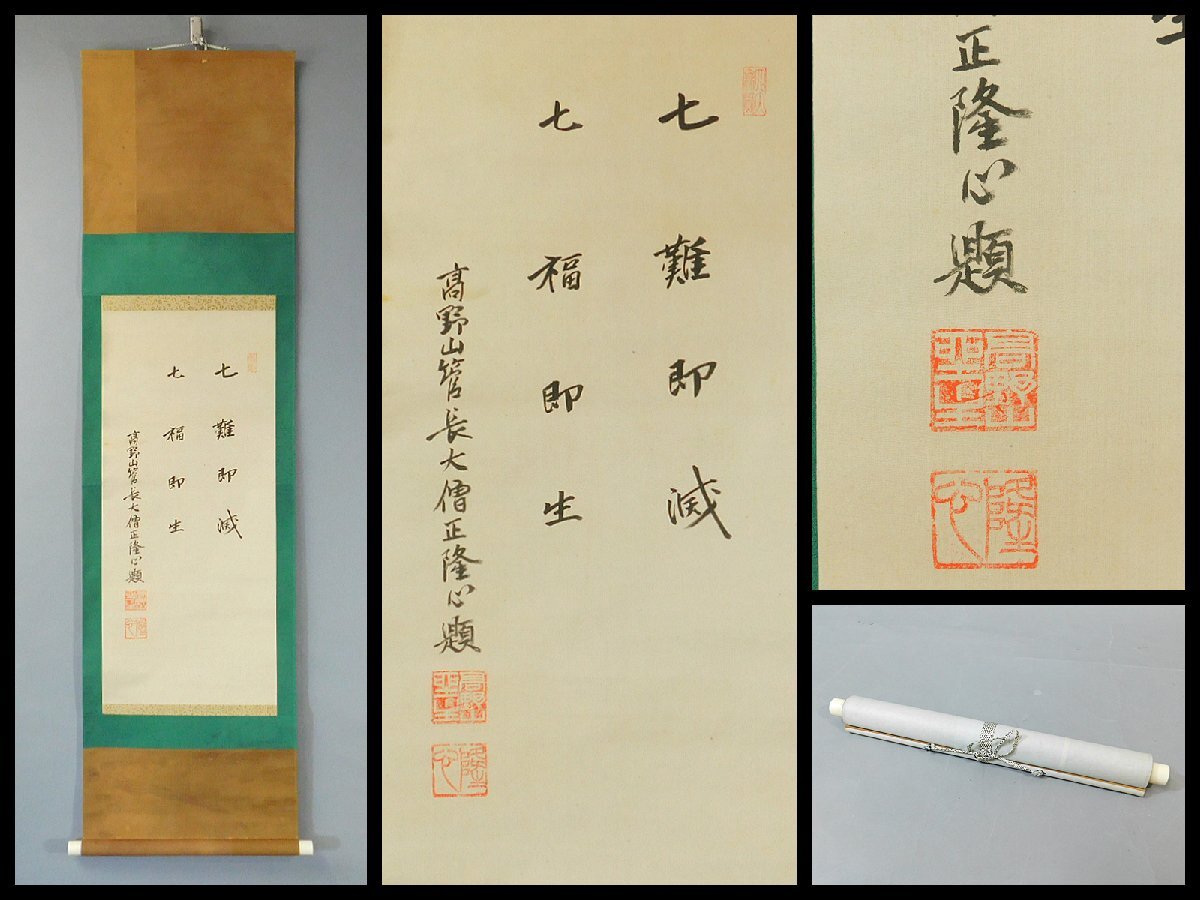 七難即滅
七福即生
高野山管長大僧正隆心題
隆心
七難即滅
七福即生
高野山管長大僧正隆心題
隆心
正隆心題
隆心